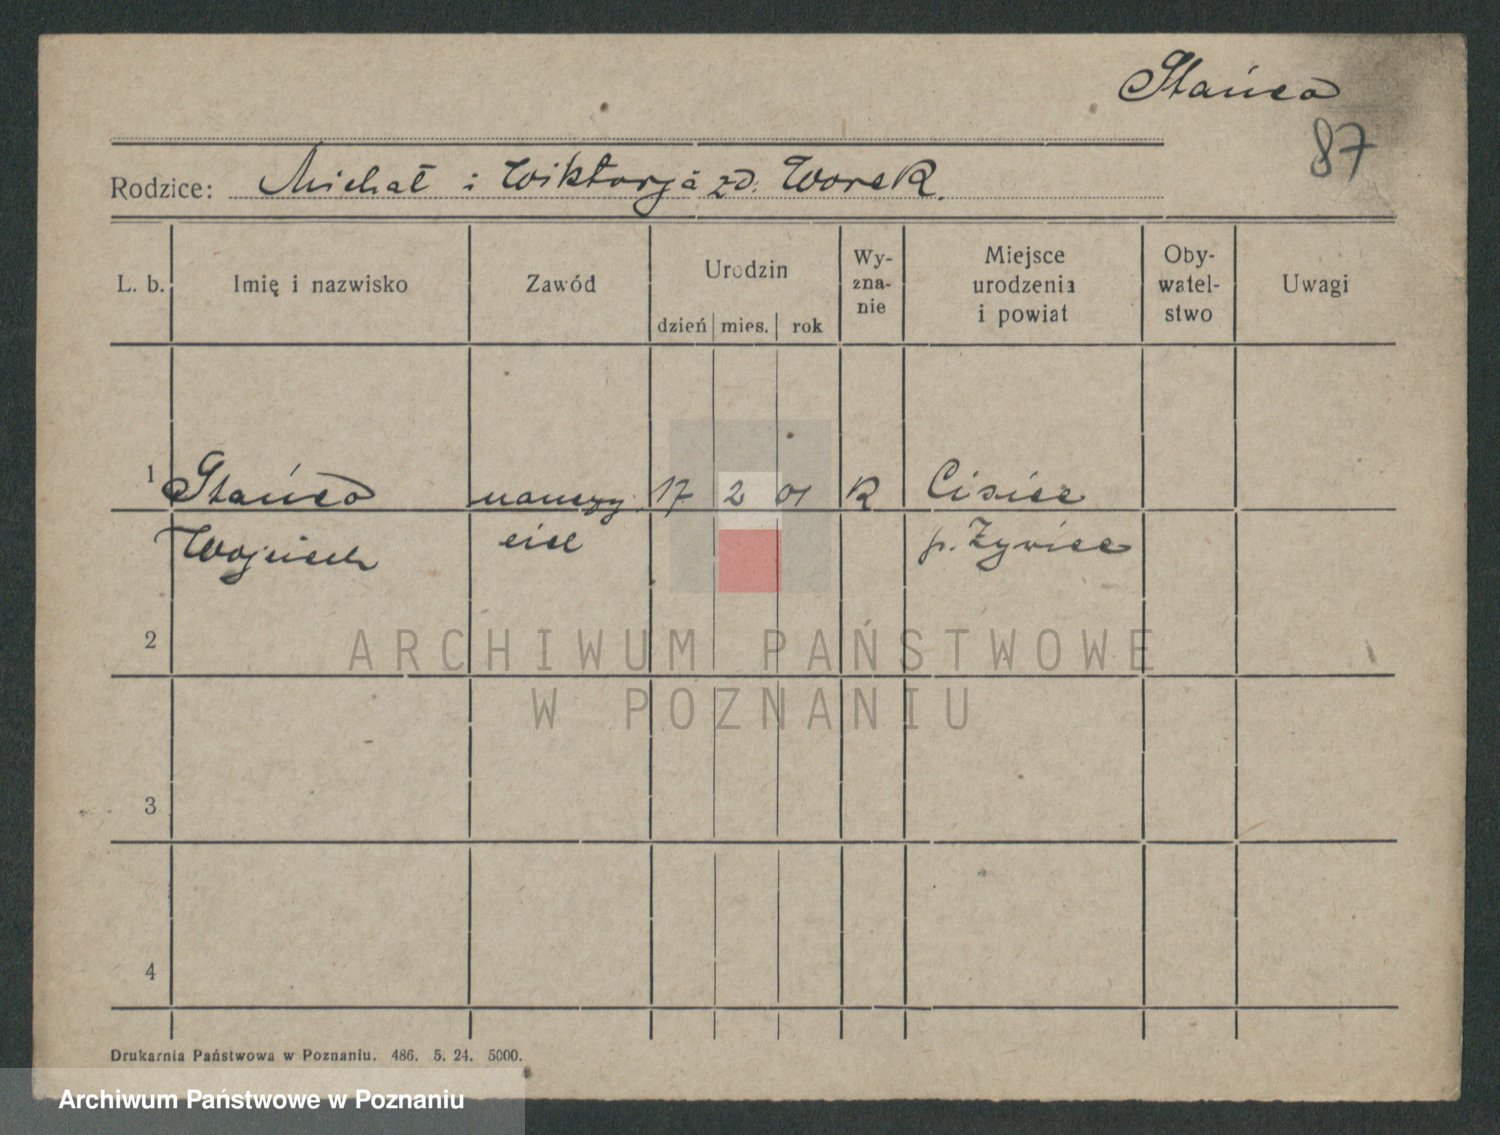 Stańco
87
Rodzice: Michał i Wiktorja zd. Worek.
L. b. Imię i nazwisko Zawód Urodzin dzień mies. rok Wy-zna-nie Miejsce urodzenia i powiat Oby-watel-stwo Uwagi
1 Stańco nauczy 17 2 01 R Cisiec
Wojciech ciel p. Żywiec
2
ARCHIWUM PAŃSTWOWE
W POZNANIU
3
4
Drukarnia Państwowa w Poznaniu. 486. 5. 24. 5000.
Archiwum Państwowe w Poznaniu